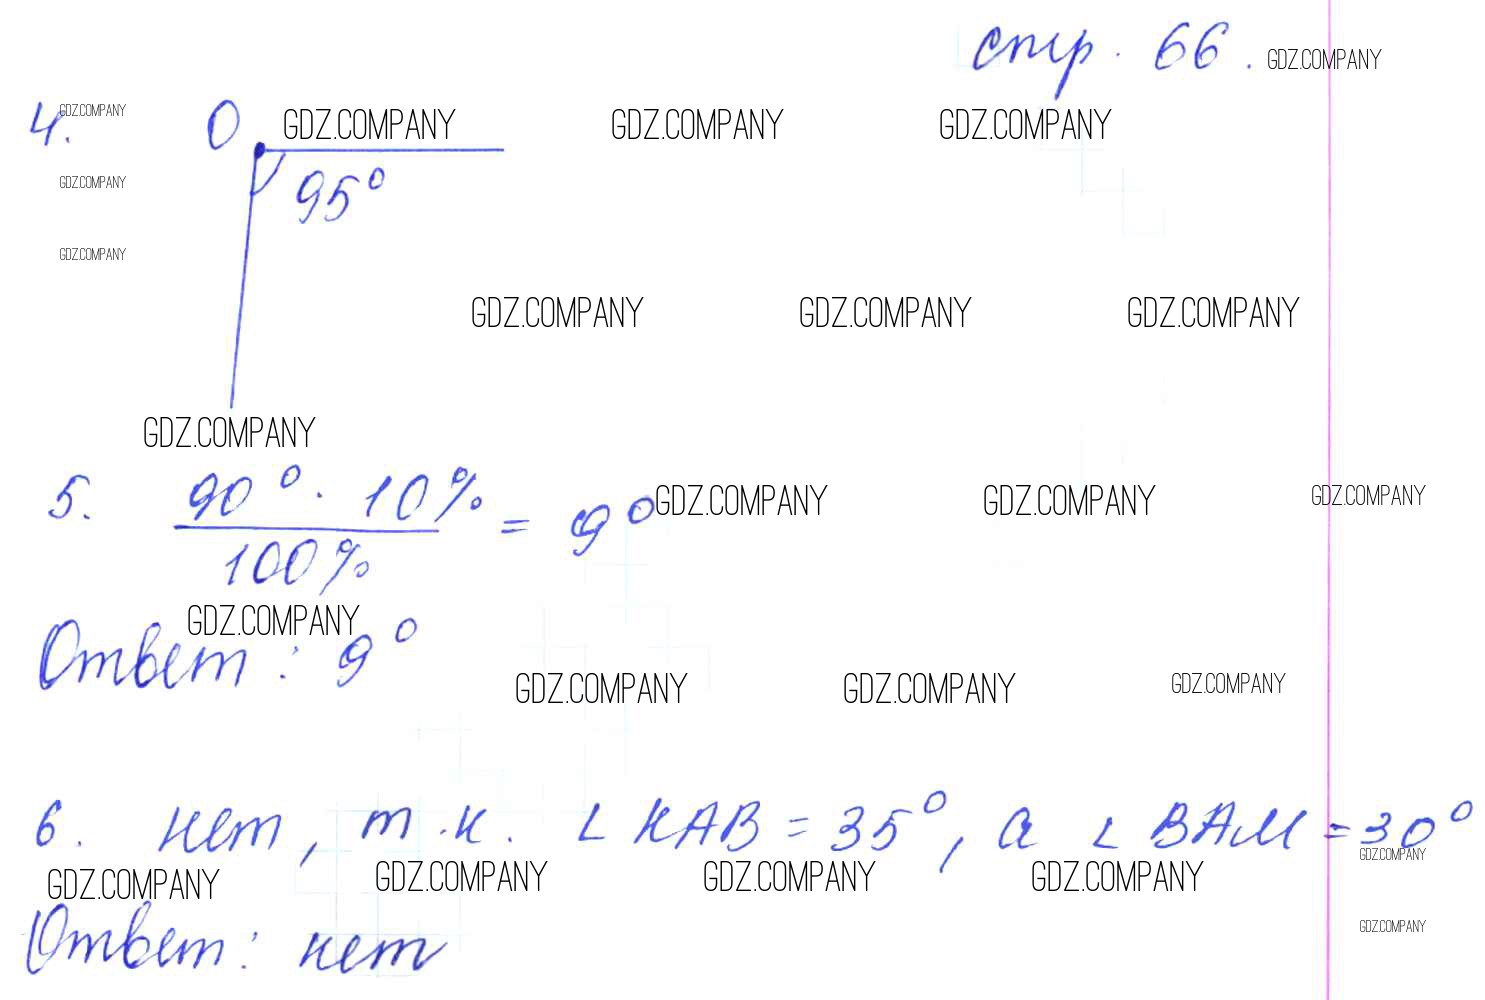 стр. 66. GDZ.COMPANY
4. GDZ.COMPANY O GDZ.COMPANY GDZ.COMPANY GDZ.COMPANY
GDZ.COMPANY 95°
GDZ.COMPANY
GDZ.COMPANY GDZ.COMPANY GDZ.COMPANY
GDZ.COMPANY
5. 90° · 10% / 100% = 9° GDZ.COMPANY GDZ.COMPANY GDZ.COMPANY
GDZ.COMPANY
Ответ: 9°
GDZ.COMPANY GDZ.COMPANY GDZ.COMPANY
6. нет, т.к. ∠ КАВ = 35°, а ∠ ВАМ = 30°
GDZ.COMPANY
GDZ.COMPANY GDZ.COMPANY GDZ.COMPANY GDZ.COMPANY
Ответ: нет
GDZ.COMPANY